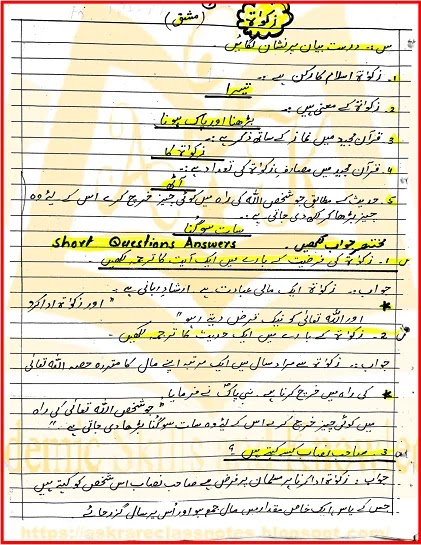 زکوٰۃ (مشق)
س:- درست بیان پر نشان لگائیں۔
1. زکوٰۃ اسلام کا رکن ہے:-
تیسرا
2. زکوٰۃ کے معنی ہیں:-
بڑھنا اور پاک ہونا
3. قرآن مجید میں نماز کے ساتھ ذکر ہے:-
زکوٰۃ کا
4. قرآن مجید میں مصارف زکوٰۃ کی تعداد ہے:-
آٹھ
5. حدیث کے مطابق جو شخص اللہ کی راہ میں کوئی چیز خرچ کرے اس کے لیے وہ
چیز بڑھا کر لکھ دی جاتی ہے:-
سات سو گنا
مختصر جواب لکھیں۔ Short Questions Answers
س 1- زکوٰۃ کی فرضیت کے بارے میں ایک آیت کا ترجمہ لکھیں۔
جواب:- زکوٰۃ ایک مالی عبادت ہے۔ ارشاد ربانی ہے۔
"اور زکوٰۃ ادا کرو
اور اللہ تعالیٰ کو نیک قرض دیتے رہو"
س 2- زکوٰۃ کے بارے میں ایک حدیث کا ترجمہ لکھیں۔
جواب:- زکوٰۃ سے مراد سال میں ایک مرتبہ اپنے مال کا مقررہ حصہ اللہ تعالیٰ
کی راہ میں خرچ کرنا ہے۔ نبی پاک نے فرمایا
"جو شخص اللہ تعالیٰ کی راہ
میں کوئی چیز خرچ کرے اس کے لیے وہ سات سو گنا بڑھا دی جاتی ہے"
س 3- صاحب نصاب کسے کہتے ہیں؟
جواب:- زکوٰۃ ادا کرنا ہر مسلمان پر فرض ہے صاحب نصاب اس شخص کو کہتے ہیں
جس کے پاس ایک خاص مقدار میں مال جمع ہو اور اس پر سال گزر جائے
https://askrareclassnotes.blogspot.com